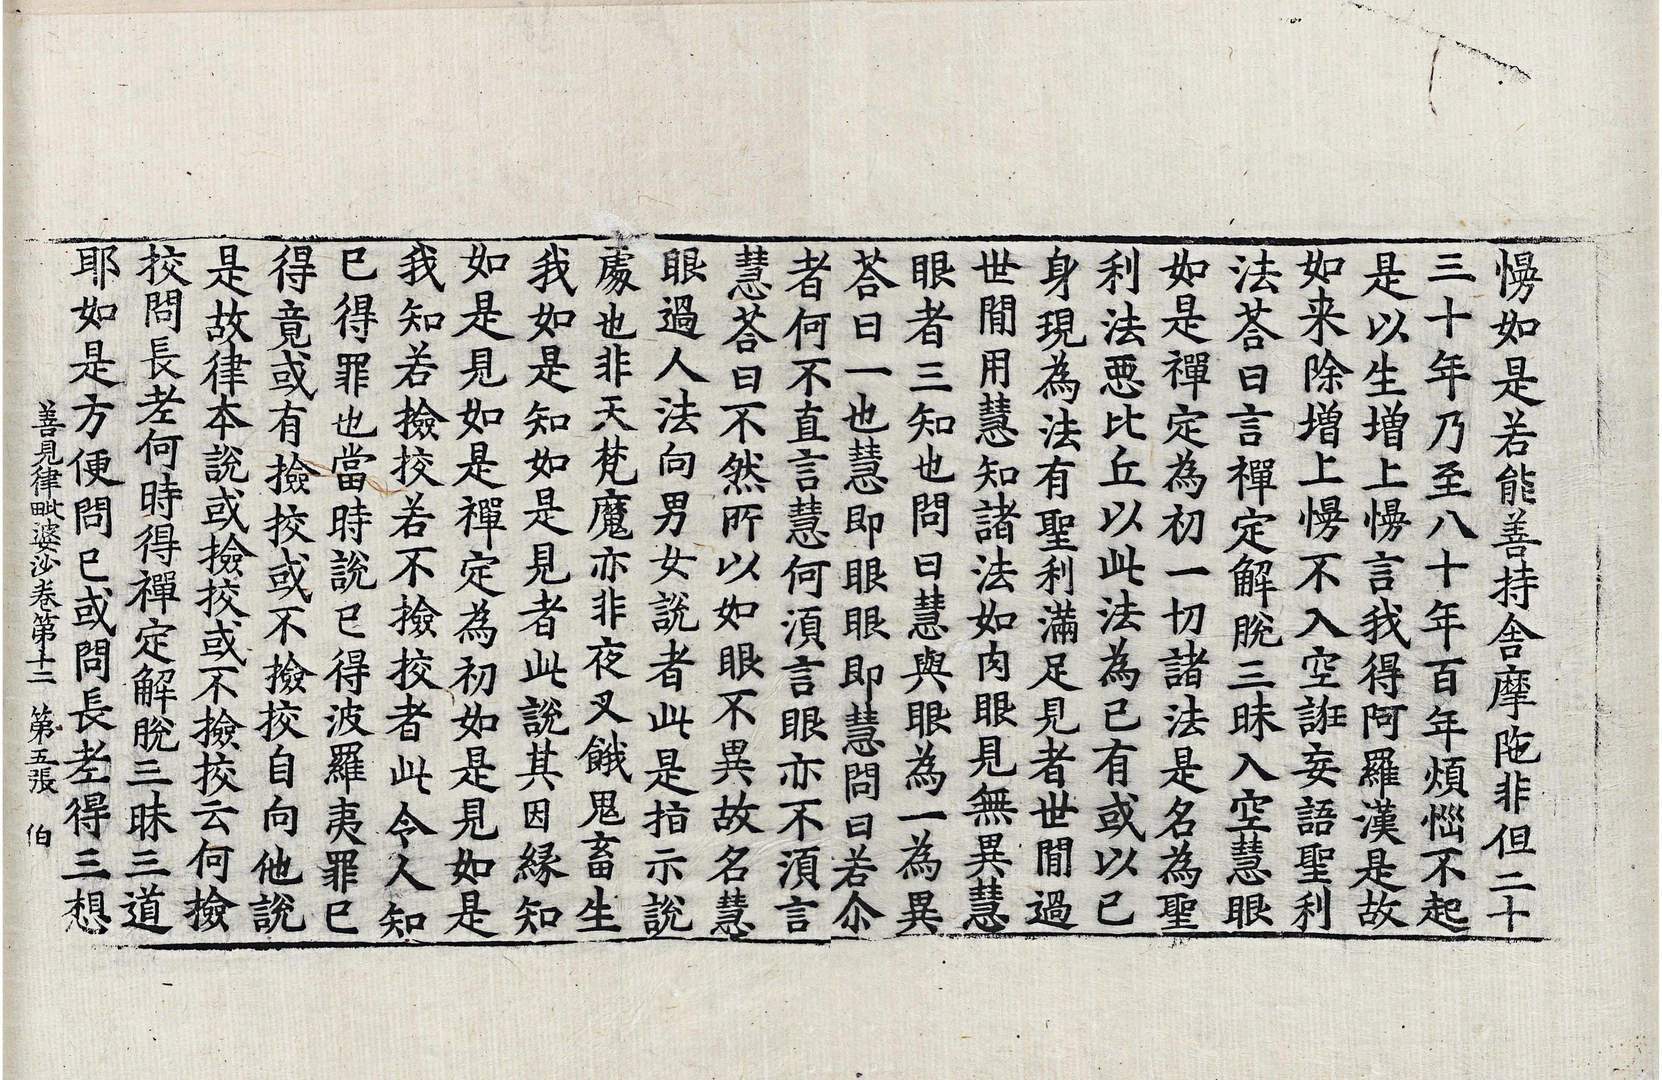 慢如是若能善持舍摩陁非但二十
三十年乃至八十年百年煩惱不起
是以生增上慢言我得阿羅漢是故
如来除增上慢不入空誑妄語聖利
法荅曰言禪定解脫三昧入空慧眼
如是禪定為初一切諸法是名為聖
利法悪比丘以此法為已有或以已
身現為法有聖利滿足見者世間過
世間用慧知諸法如肉眼見無異慧
眼者三知也問曰慧與眼為一為異
荅曰一也慧即眼眼即慧問曰若尒
者何不直言慧何湏言眼亦不湏言
慧荅曰不然所以如眼不異故名慧
眼過人法向男女說者此是指示說
處也非天梵魔亦非夜叉餓鬼畜生
我如是知如是見者此說其因縁知
如是見如是禪定為初如是見如是
我知若撿挍若不撿挍者此令人知
已得罪也當時說已得波羅夷罪已
得竟或有撿挍或不撿挍自向他說
是故律本說或撿挍或不撿挍云何撿
挍問長老何時得禪定解脫三昧三道
耶如是方便問已或問長老得三想
善見律毗婆沙卷第十二 第五張 伯